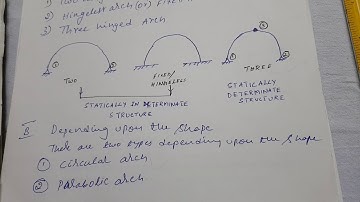 2) Hingeless arch (or) Fixed
3) Three hinged Arch
① ② ① ② ③
TWO FIXED/ THREE
HINGELESS
STATICALLY IN DETERMINATE
STRUCTURE
STATICALLY
DETERMINATE
STRUCTURE
B Depending upon the Shape
There are two types depending upon the shape
① Circular arch
② Parabolic arch